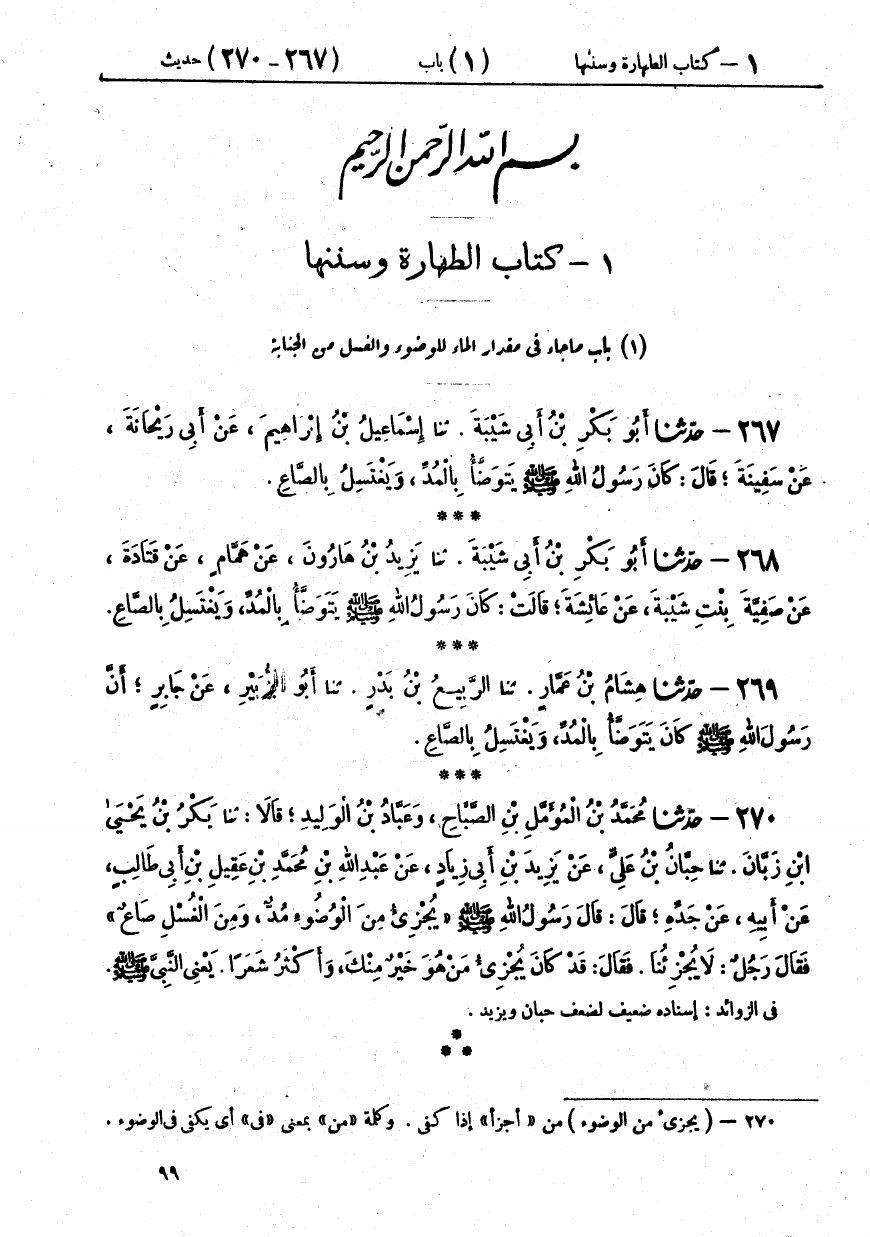 ١ – كتاب الطهارة وسننها (١) باب (٢٦٧ – ٢٧٠) حديث
بسم الله الرحمن الرحيم
١ – كتاب الطهارة وسننها
(١) باب ماجاء فى مقدار الماء للوضوء والغسل من الجنابة
٢٦٧ – حَدَّثَنَا أَبُو بَكْرِ بْنُ أَبِى شَيْبَةَ . ثنا إِسْمَاعِيلُ بْنُ إِبْرَاهِيمَ ، عَنْ أَبِى رَيْحَانَةَ ،
عَنْ سَفِينَةَ ؛ قَالَ : كَانَ رَسُولُ اللهِ ﷺ يَتَوَضَّأُ بِالْمُدِّ ، وَيَغْتَسِلُ بِالصَّاعِ .
***
٢٦٨ – حَدَّثَنَا أَبُو بَكْرِ بْنُ أَبِى شَيْبَةَ . ثنا يَزِيدُ بْنُ هَارُونَ ، عَنْ هَمَّامٍ ، عَنْ قَتَادَةَ ،
عَنْ صَفِيَّةَ بِنْتِ شَيْبَةَ ، عَنْ عَائِشَةَ ؛ قَالَتْ : كَانَ رَسُولُ اللهِ ﷺ يَتَوَضَّأُ بِالْمُدِّ، وَيَغْتَسِلُ بِالصَّاعِ.
***
٢٦٩ – حَدَّثَنَا هِشَامُ بْنُ عَمَّارٍ . ثنا الرَّبِيعُ بْنُ بَدْرٍ . ثنا أَبُو الزُّبَيْرِ ، عَنْ جَابِرٍ ؛ أَنَّ
رَسُولَ اللهِ ﷺ كَانَ يَتَوَضَّأُ بِالْمُدِّ، وَيَغْتَسِلُ بِالصَّاعِ .
***
٢٧٠ – حَدَّثَنَا مُحَمَّدُ بْنُ الْمُؤَمَّلِ بْنِ الصَّبَّاحِ، وَعَبَّادُ بْنُ الْوَلِيدِ ؛ قَالَا : ثنا بَكْرُ بْنُ يَحْيَىٰ
ابْنِ زَبَّانَ . ثنا حِبَّانُ بْنُ عَلِيٍّ ، عَنْ يَزِيدَ بْنِ أَبِى زِيَادٍ ، عَنْ عَبْدِ اللهِ بْنِ مُحَمَّدِ بْنِ عَقِيلِ بْنِ أَبِى طَالِبٍ،
عَنْ أَبِيهِ ، عَنْ جَدِّهِ ؛ قَالَ : قَالَ رَسُولُ اللهِ ﷺ « يُجْزِئُ مِنَ الْوُضُوءِ مُدٌّ ، وَمِنَ الْغُسْلِ صَاعٌ »
فَقَالَ رَجُلٌ : لَا يُجْزِئُنَا . فَقَالَ: قَدْ كَانَ يُجْزِئُ مَنْ هُوَ خَيْرٌ مِنْكَ، وَأَكْثَرُ شَعَرًا . يَعْنِى النَّبِىَّ ﷺ.
فى الزوائد : إسناده ضعيف لضعف حبان ويزيد .
***
٢٧٠ – ( يجزئ من الوضوء ) من « أجزأ » إذا كفى . وكلمة «من» بمعنى «فى» أى يكفى فى الوضوء .
٩٩